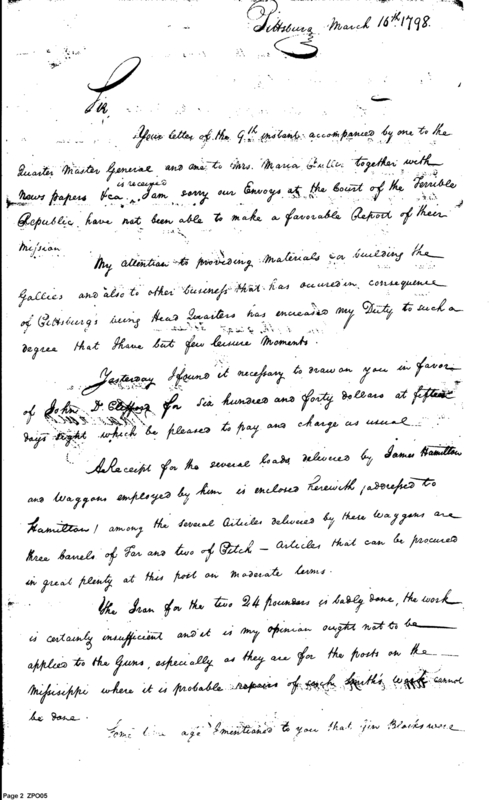 Pittsburg March 16th 1798.
Sir,
Your letter of the 9th instant accompanied by one to the
Quarter Master General and one to Mrs. Maria together with
news papers &ca is received I am sorry our Envoys at the Court of the Terrible
Republic have not been able to make a favorable Report of their
Mission
My attention to providing materials for building the
Gallies and also to other business that has occured in consequence
of Pittsburg's being Head Quarters has encreased my Duty to such a
degree that I have but few leisure moments.
Yesterday I found it necessary to draw on you in favor
of John D. Clifford for six hundred and forty dollars at fifteen
days sight which be pleased to pay and charge as usual
A Receipt for the several loads delivered by James Hamilton
and waggons employed by him is enclosed herewith, (addressed to
Hamilton) among the several Articles delivered by these Waggons are
three barrels of Tar and two of Pitch — Articles that can be procured
in great plenty at this post on moderate terms.
The Iron for the two 24 pounders is badly done, the work
is certainly insufficient and it is my opinion ought not to be
applied to the Guns, especially as they are for the posts on the
Missisippi where it is probable repairs of such Smith's work cannot
be done.
Some time ago I mentioned to you that Gin Blocks were
Page 2 ZPO05